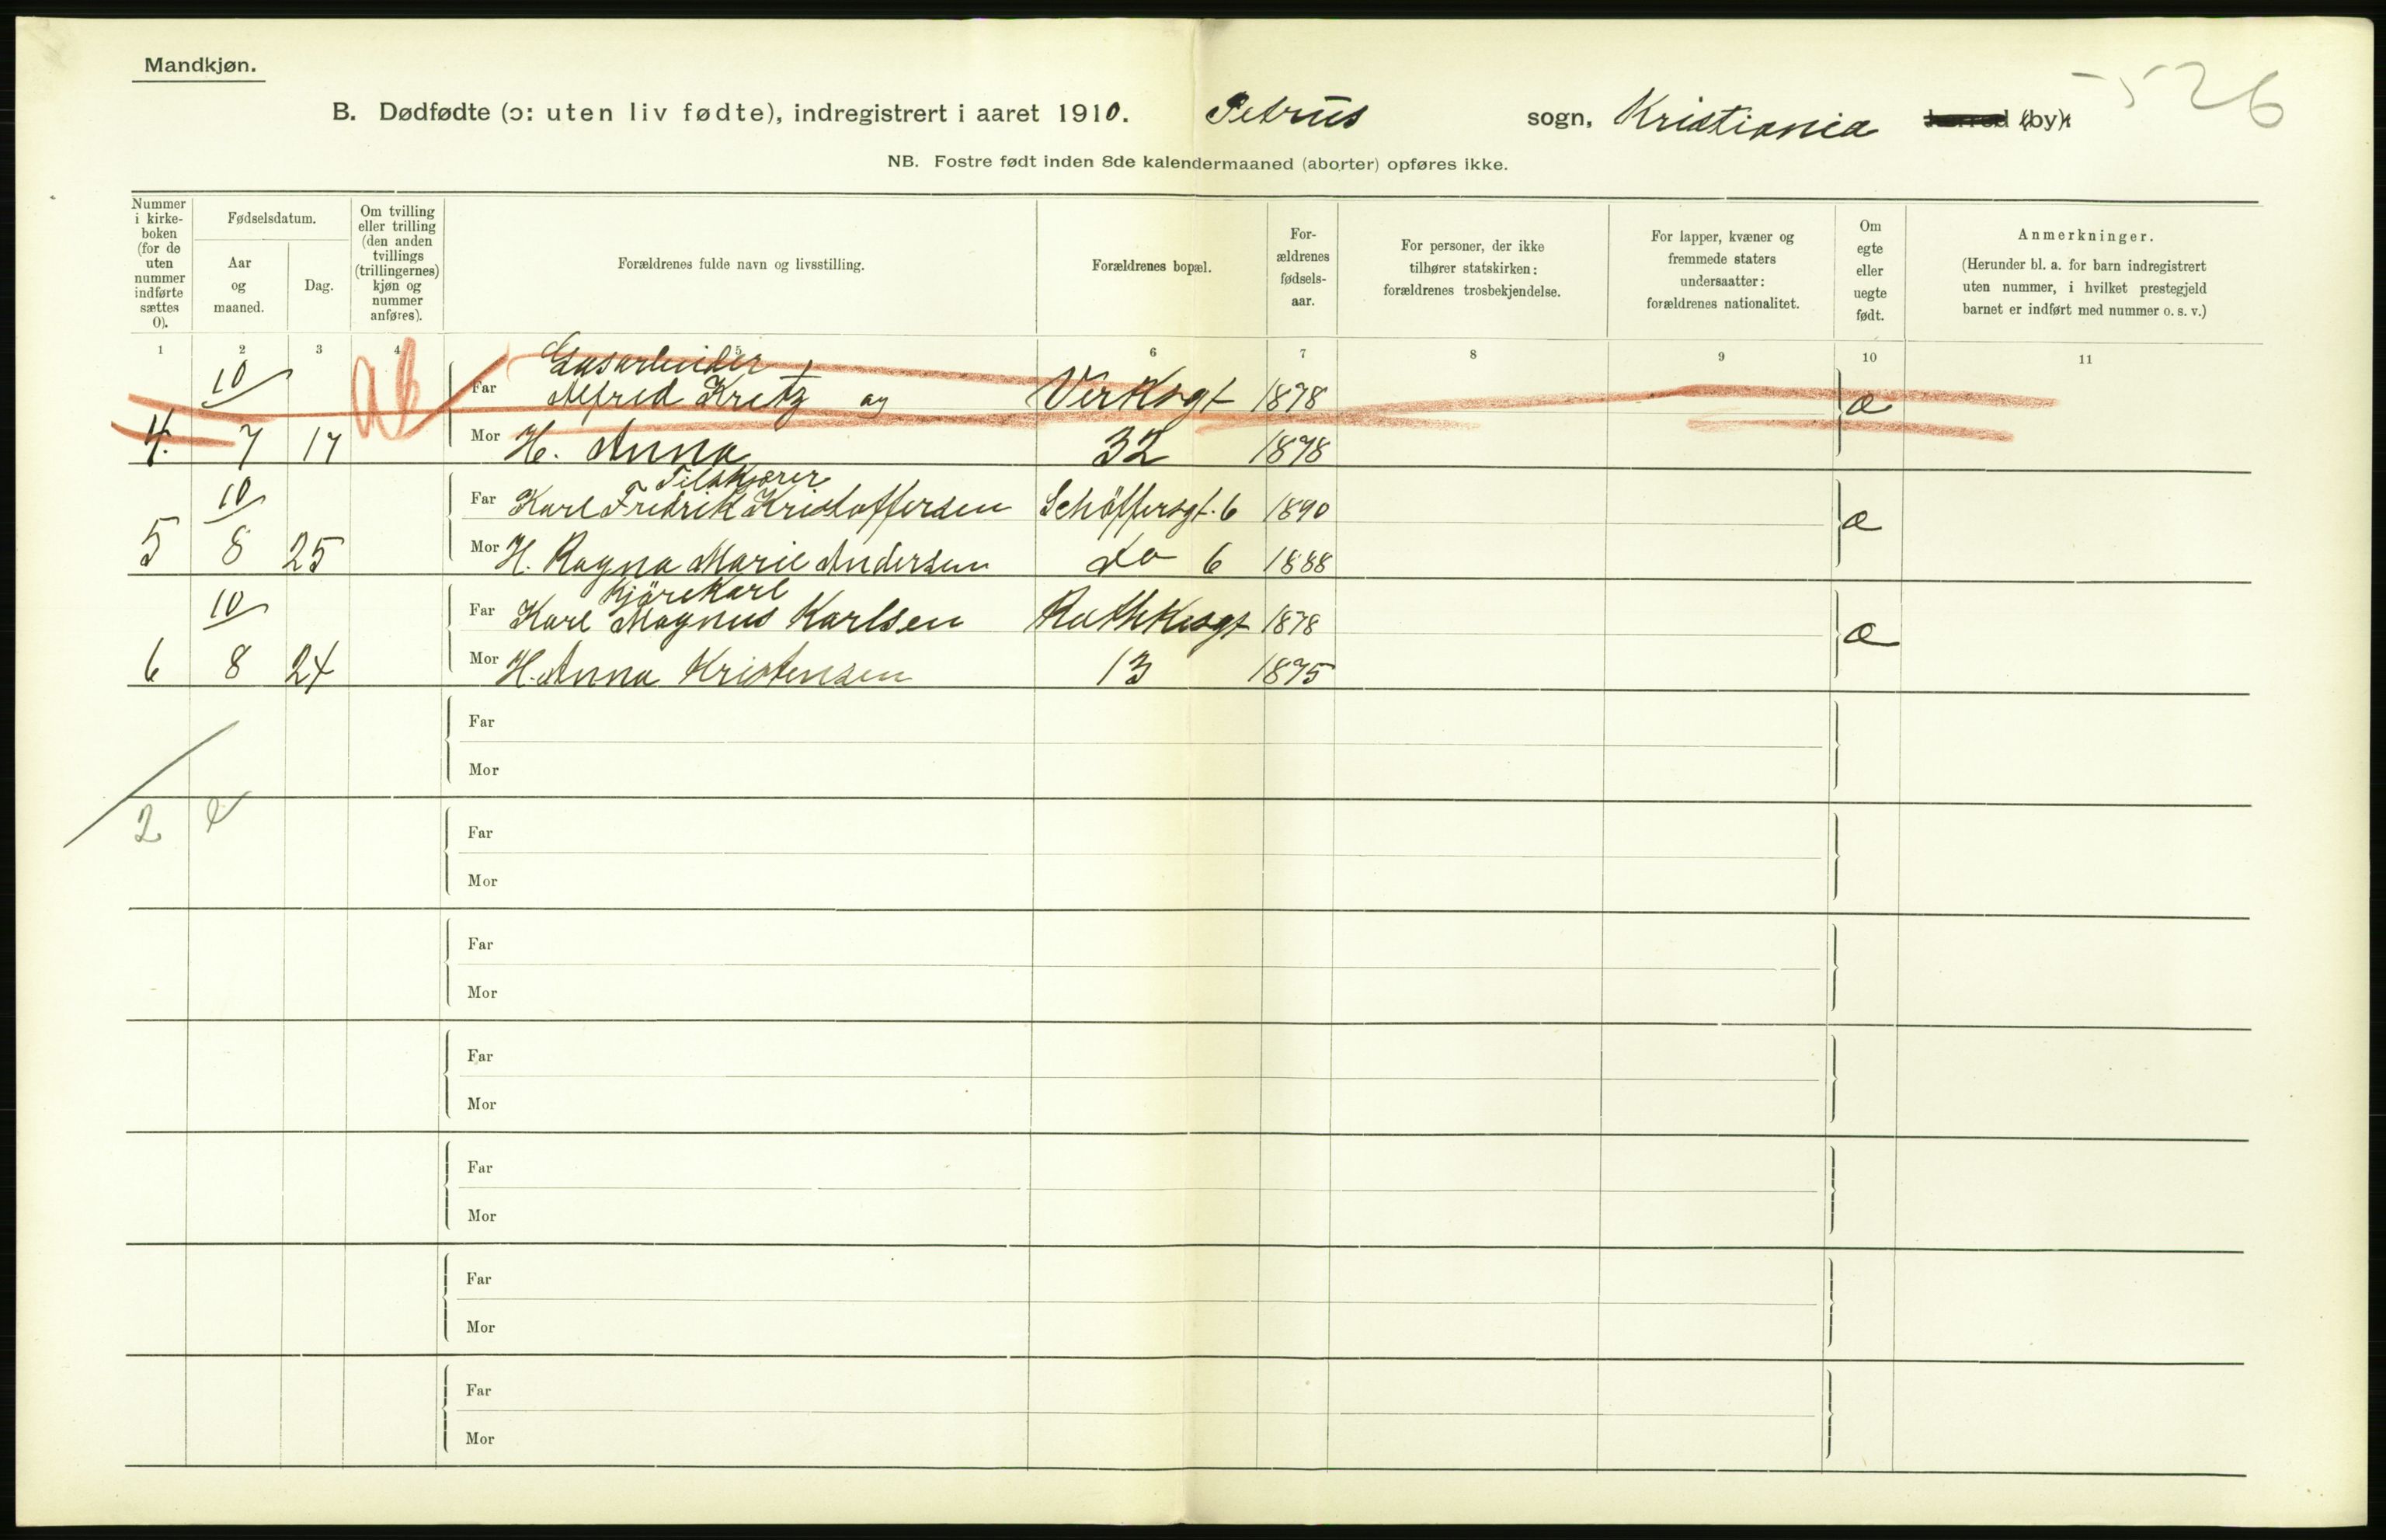 Mandkjøn.
526
B. Dødfødte (ɔ: uten liv fødte), indregistrert i aaret 1910. Petrus sogn, Kristiania herred (by).
NB. Fostre født inden 8de kalendermaaned (aborter) opføres ikke.
Nummer i kirkeboken (for de uten nummer indførte sættes 0).
Fødselsdatum.
Aar og maaned.
Dag.
Om tvilling eller trilling (den anden tvillings (trillingernes) kjøn og nummer anføres).
Forældrenes fulde navn og livsstilling.
Forældrenes bopæl.
Forældrenes fødselsaar.
For personer, der ikke tilhører statskirken: forældrenes trosbekjendelse.
For lapper, kvæner og fremmede staters undersaatter: forældrenes nationalitet.
Om egte eller uegte født.
Anmerkninger.
(Herunder bl. a. for barn indregistrert uten nummer, i hvilket prestegjeld barnet er indført med nummer o. s. v.)
1 2 3 4 5 6 7 8 9 10 11
Gasarbeider
10 ab Far Alfred Kretz og Verksgt 1878 æ
4. 7 17 Mor H. Anna 32 1878
Tilskjærer
10 Far Karl Fredrik Kristoffersen Schöffersgt. 6 1890 æ
5 8 25 Mor H. Ragna Marie Andersen do 6 1888
Kjörekarl
10 Far Karl Magnus Karlsen Rathkesgt 1878 æ
6 8 24 Mor H. Anna Kristensen 13 1875
Far
Mor
2
Far
Mor
Far
Mor
Far
Mor
Far
Mor
Far
Mor
Far
Mor